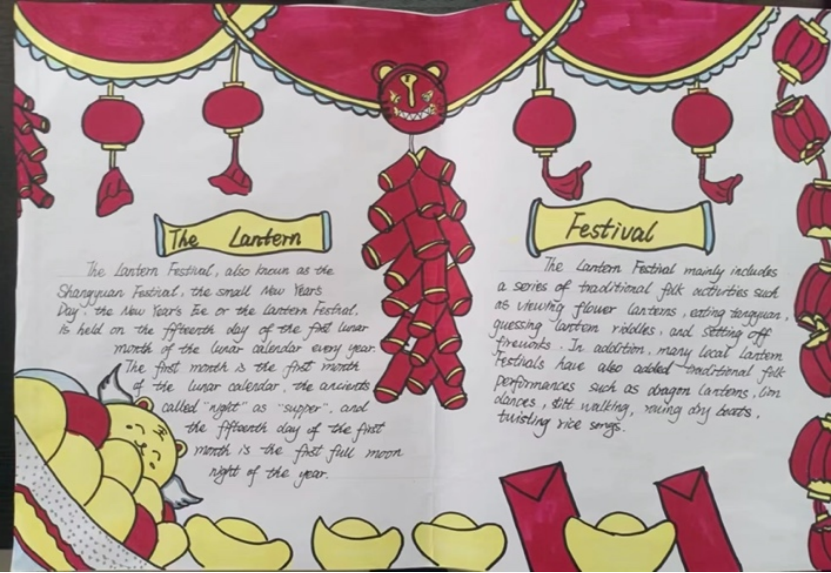 The Lantern
The Lantern Festival, also known as the
Shangyuan Festival, the small New Year's
Day, the New Year's Ee or the Lantern Festival,
is held on the fifteenth day of the first lunar
month of the lunar calendar every year.
The first month is the first month
of the lunar calendar, the ancients
called "night" as "supper", and
the fifteenth day of the first
month is the first full moon
night of the year.
Festival
The Lantern Festival mainly includes
a series of traditional folk activities such
as viewing flower lanterns, eating tangyuan,
guessing lantern riddles, and setting off
fireworks. In addition, many local Lantern
Festivals have also added traditional folk
performances such as dragon lanterns, lion
dances, stilt walking, rowing dry boats,
twisting rice songs.